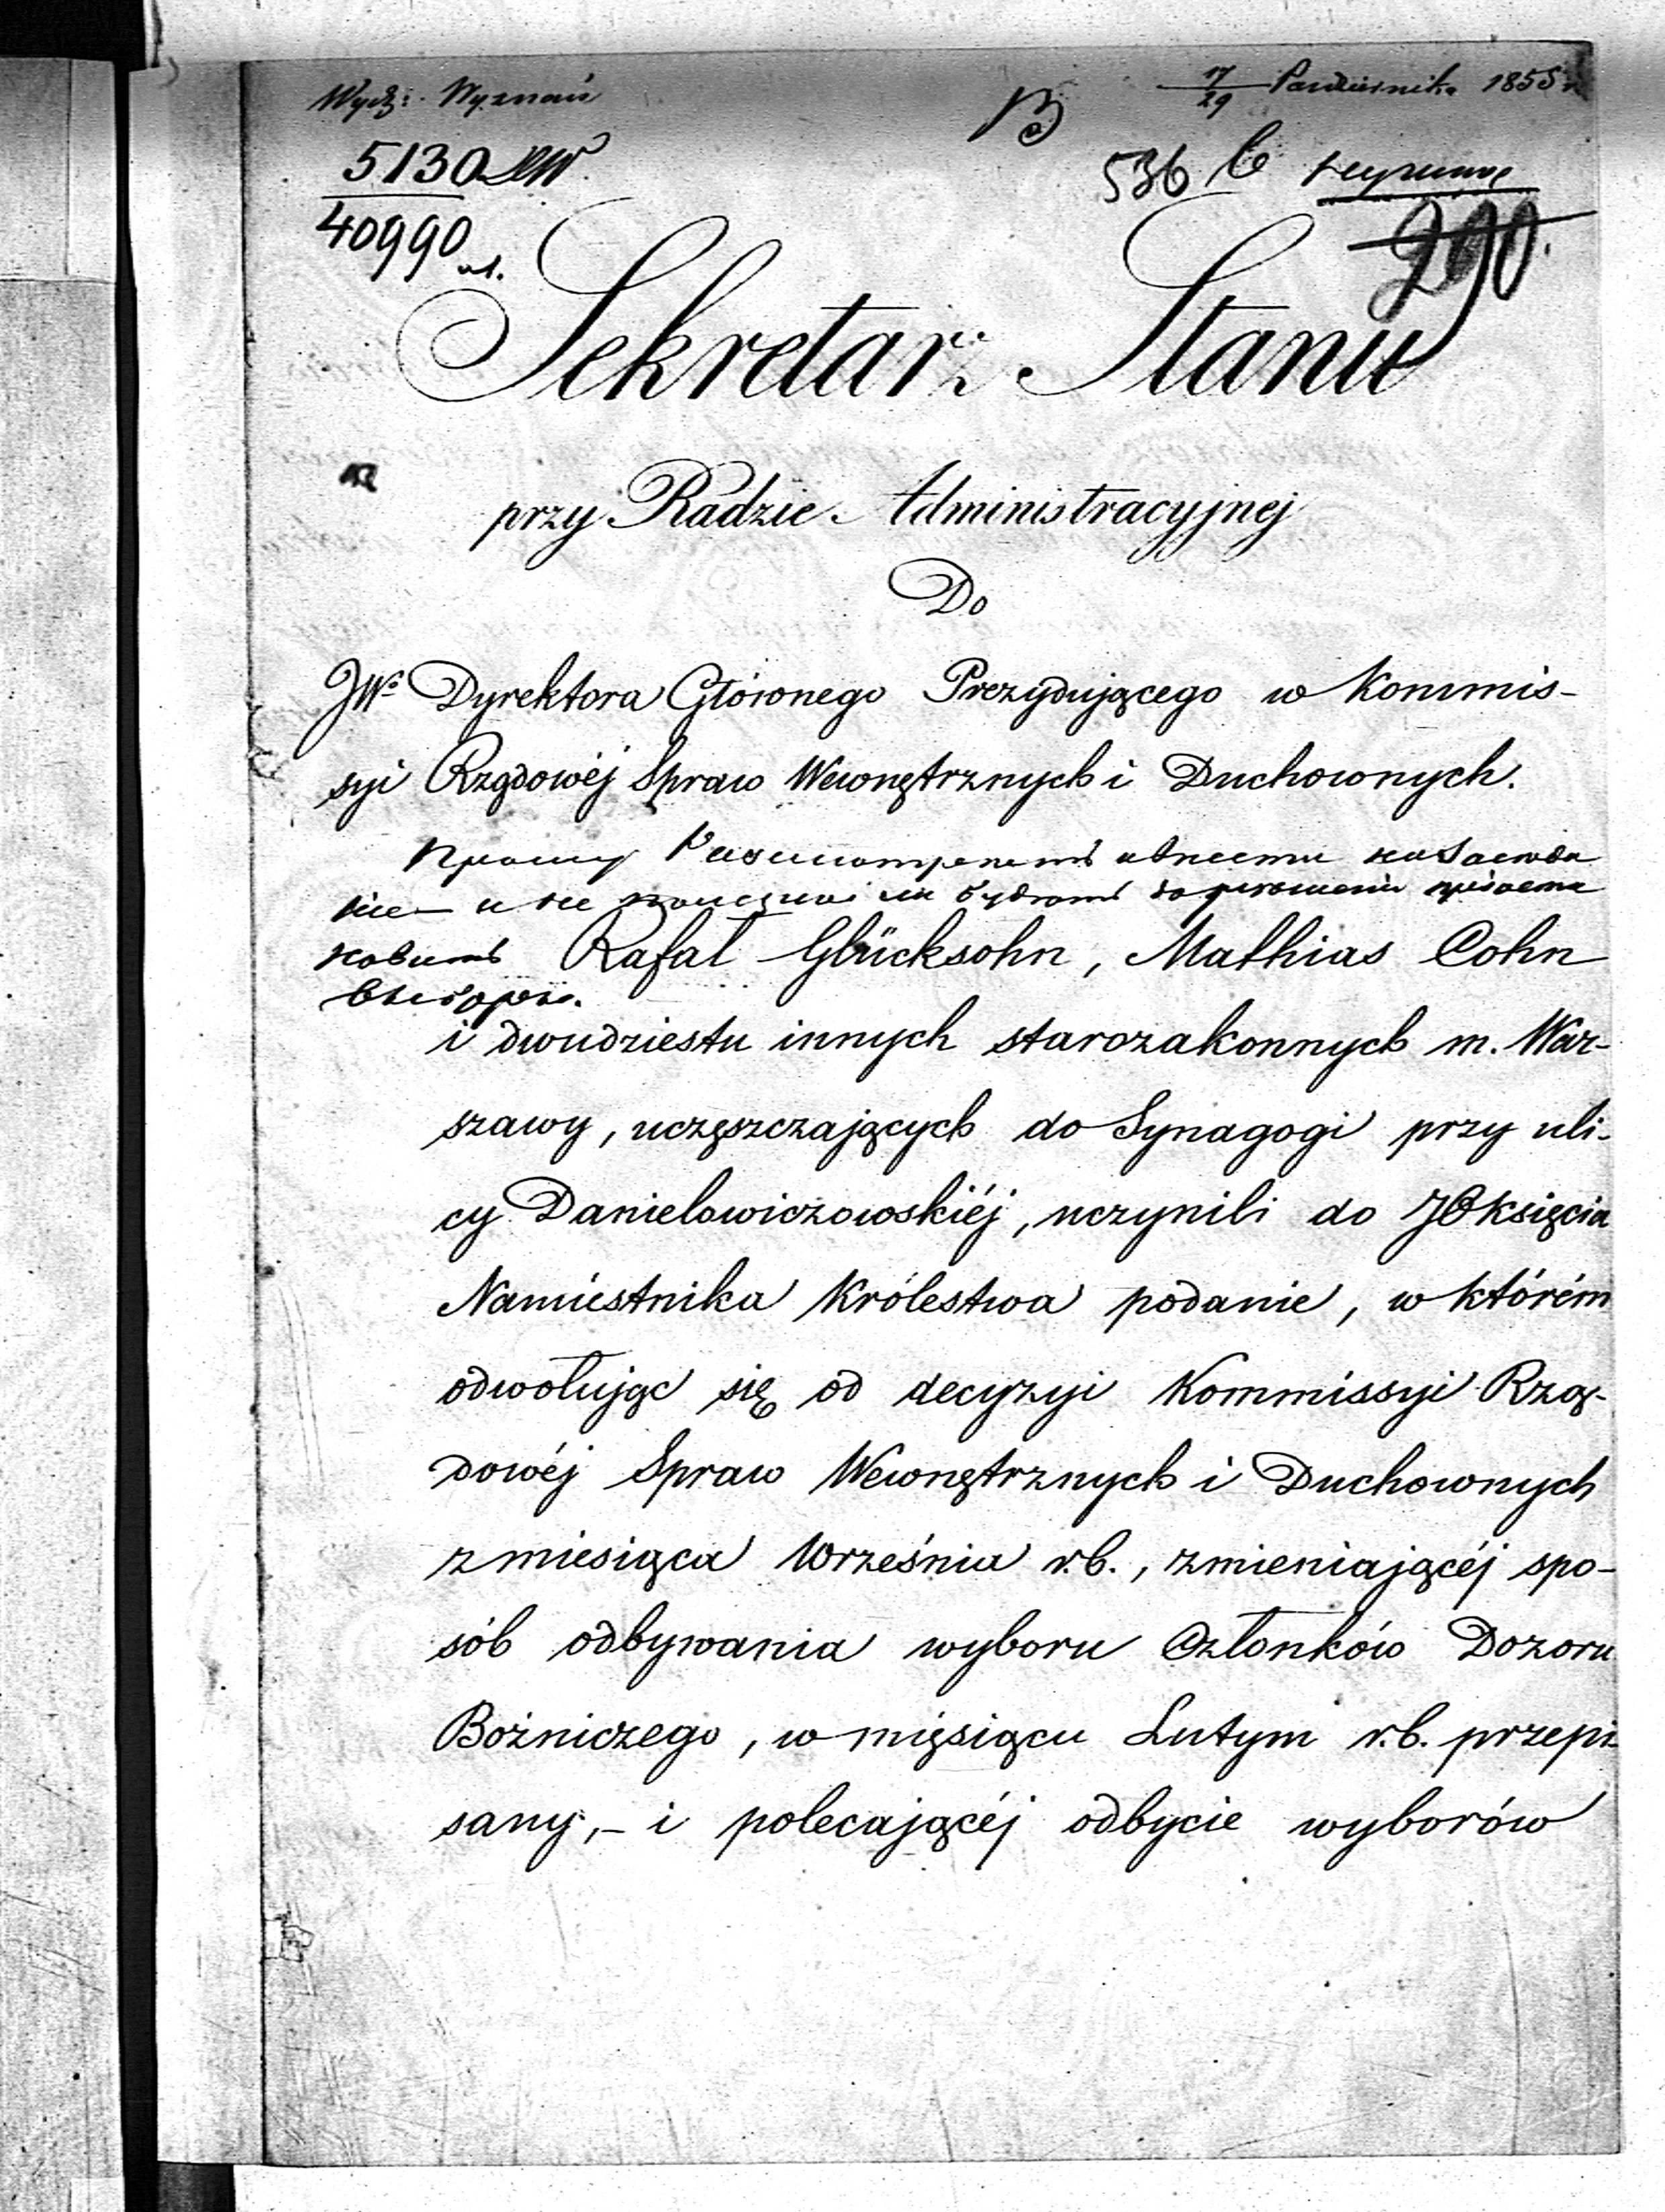 Wydz: Wyznań
17/29 Października 1855 r.
5130
40990
536
290.
Sekretarz Stanu
przy Radzie Administracyjnej
Do
JWo Dyrektora Głównego Prezydującego w Kommis-
syi Rządowéj Spraw Wewnętrznych i Duchownych.
Прошу
Rafał Glücksohn, Mathias Cohn
i dwudziestu innych starozakonnych m. War-
szawy, uczęszczających do Synagogi przy uli-
cy Danielowiczowskiéj, uczynili do JO księcia
Namiestnika Królestwa podanie, w którém
odwołując się od decyzyi Kommissyi Rzą-
dowéj Spraw Wewnętrznych i Duchownych
z miesiąca Września r.b., zmieniającéj spo-
sób odbywania wyboru Członków Dozoru
Bożniczego, w mięsiącu Lutym r.b. przepi-
sany,- i polecającéj odbycie wyborów